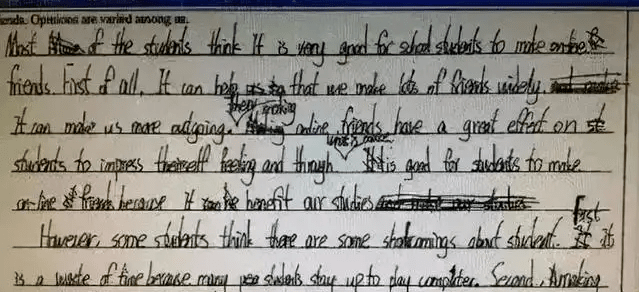 iends. Opinions are varied among us.
Most of the students think It is very good for school students to make on-line
friends. First of all, It can help that we make lots of friends widely.
It can make us more outgoing. Then making online friends have a great effect on
students to impress theirself feeling and through It is good for students to make
on-line friends because It can be benefit our studies
However, some students think there are some shotcomings about student. First it
is a waste of time because many students stay up to play computer. Second, making